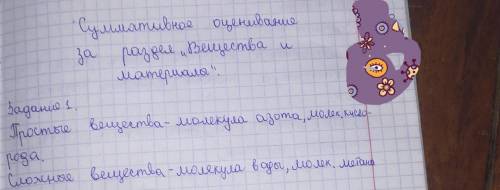 Суммативное оценивание
за раздел „Вещества и
материалы".
Задание 1.
Простые вещества- молекула азота, молек. кисло-
рода.
Сложные вещества- молекула воды, молек. метана